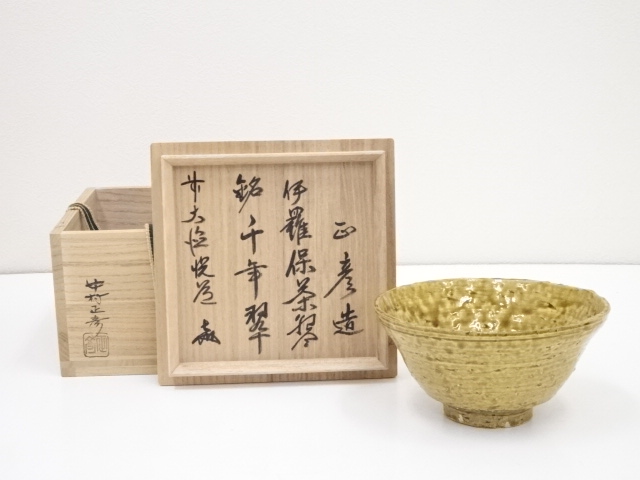 正彦造
伊羅保茶碗
銘千年翠
前大徳悦道
中村正彦